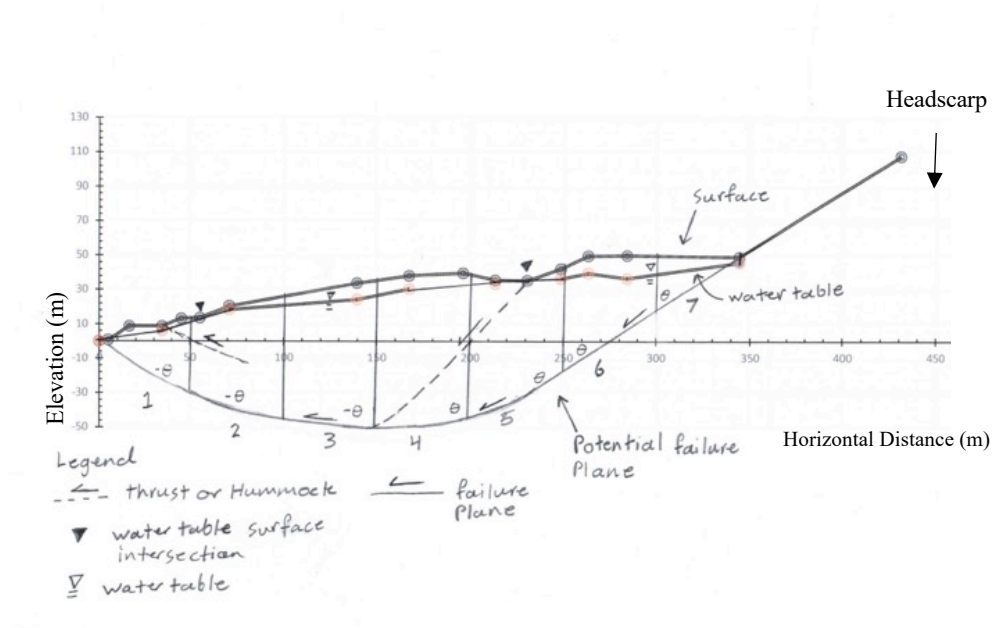 Headscarp
130
110
90
70
50
30
10
-10
-30
-50
Elevation (m)
50
100
150
200
250
300
350
400
450
Surface
water table
θ
θ
θ
θ
-θ
-θ
-θ
1
2
3
4
5
6
7
Potential failure
Plane
Horizontal Distance (m)
Legend
thrust or Hummock
failure
Plane
water table surface
intersection
water table